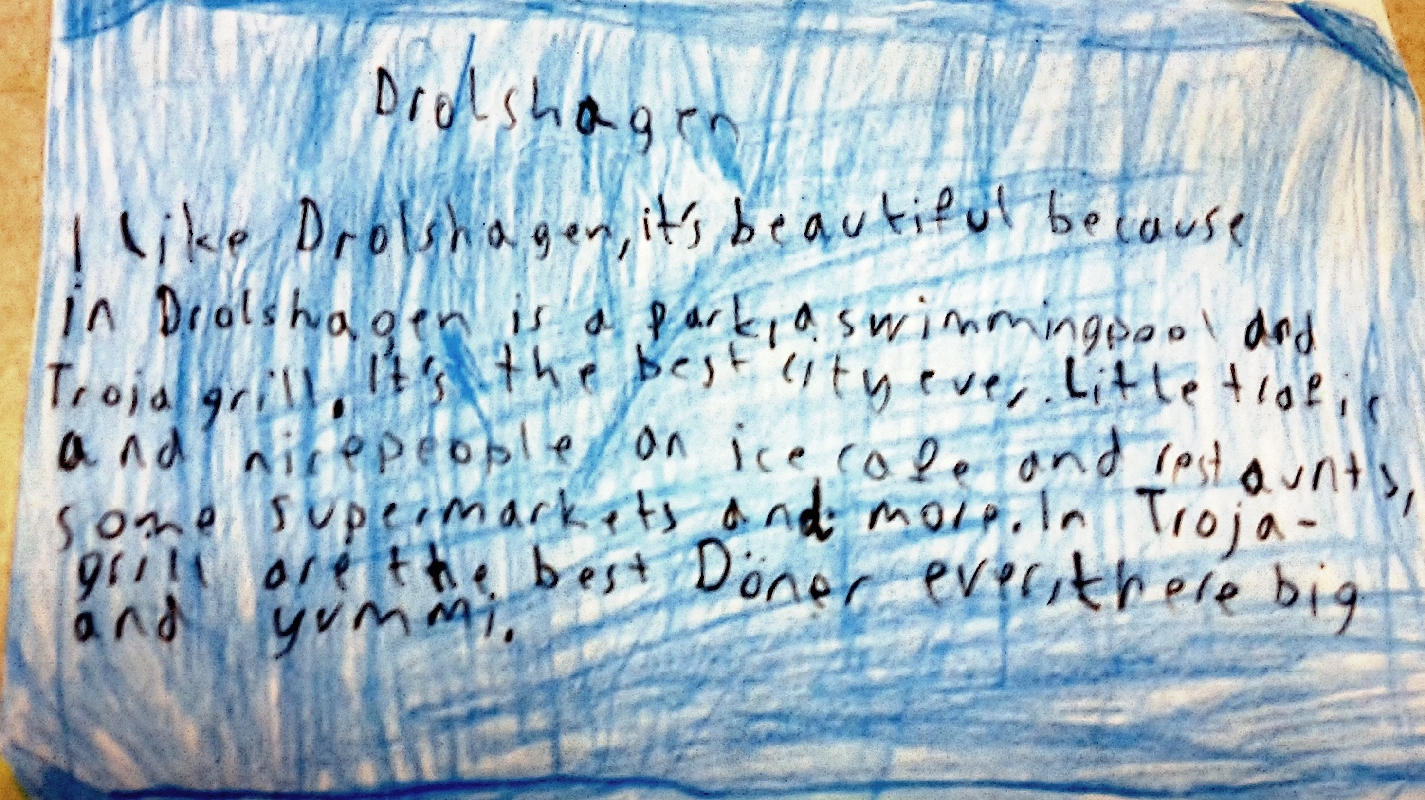 Drolshagen
I like Drolshagen, it's beautiful because
in Drolshagen is a park, a swimmingpool and
Troja grill. It's the best city ever. Little trafic
and nicepeople an ice cafe and restaunts,
some supermarkets and more. In Troja-
grill are the best Döner ever, there big
and yummi.